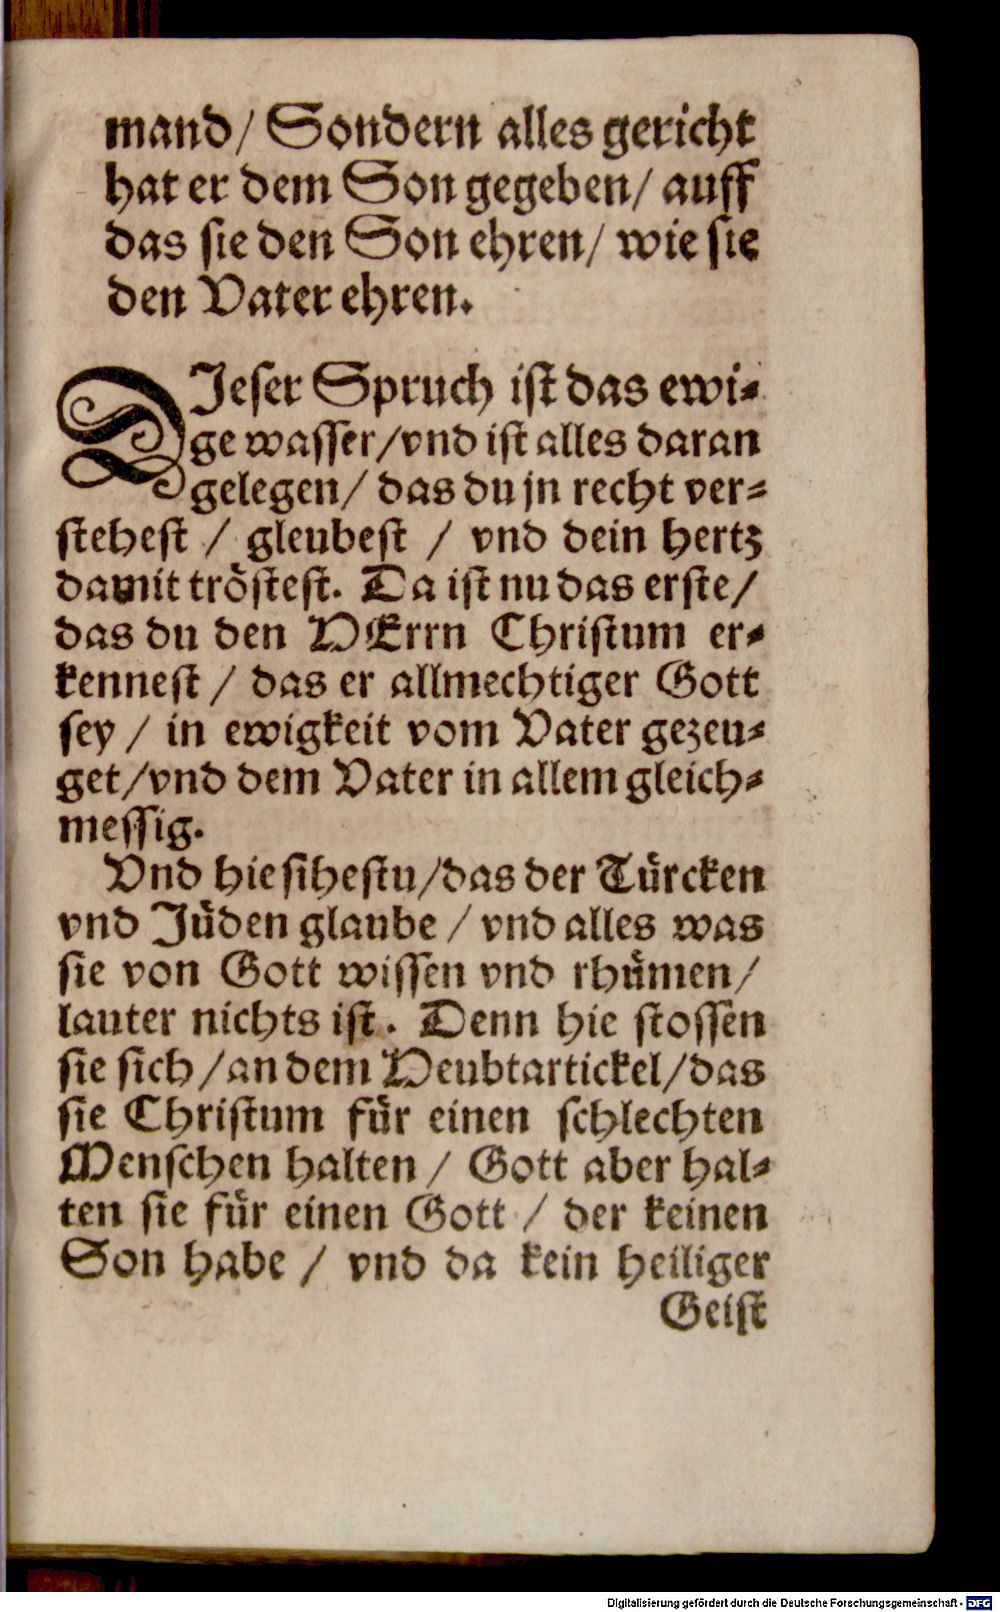 mand/ Sondern alles gericht
hat er dem Son gegeben/ auff
das sie den Son ehren/ wie sie
den Vater ehren.
DIeser Spruch ist das ewi-
ge wasser/vnd ist alles daran
gelegen/ das du jn recht ver-
stehest / gleubest / vnd dein hertz
damit tröstest. Da ist nu das erste/
das du den HErrn Christum er-
kennest / das er allmechtiger Gott
sey / in ewigkeit vom Vater gezeu-
get/vnd dem Vater in allem gleich-
messig.
Vnd hie sihestu/das der Türcken
vnd Jüden glaube / vnd alles was
sie von Gott wissen vnd rhümen/
lauter nichts ist. Denn hie stossen
sie sich/an dem Heubtartickel/das
sie Christum für einen schlechten
Menschen halten / Gott aber hal-
ten sie für einen Gott / der keinen
Son habe / vnd da kein heiliger
Geist
Digitalisierung gefördert durch die Deutsche Forschungsgemeinschaft - DFG